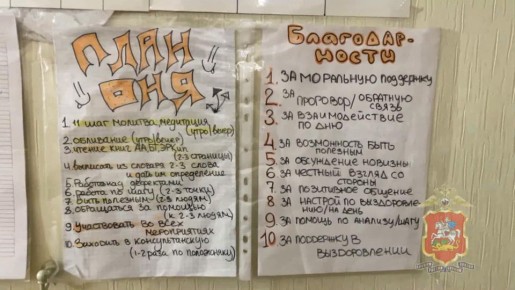 ПЛАН
ДНЯ
1. 11 шаг молитва, медитация
(утро/вечер)
2. Обливание (утро/вечер)
3. Чтение книг
(2-3 страницы)
4. Выписать из словаря 2-3 слова
и дать им определение
5. Работа над дефектами
6. Работа по шагу (2-3 точки)
7. Быть полезным (2-3 людям)
8. Обращаться за помощью
(к 2-3 людям)
9. Участвовать во всех
мероприятиях
10. Заходить в консультанскую
(1-2 раза по положению)
БЛАГОДАР-
НОСТИ
1. ЗА МОРАЛЬНУЮ ПОДДЕРЖКУ
2. ЗА ПРОГОВОР/ОБРАТНУЮ
СВЯЗЬ
3. ЗА ВЗАИМОДЕЙСТВИЕ
ПО ДНЮ
4. ЗА ВОЗМОЖНОСТЬ БЫТЬ
ПОЛЕЗНЫМ
5. ЗА ОБСУЖДЕНИЕ НОВИЗНЫ
6. ЗА ЧЕСТНЫЙ ВЗГЛЯД СО
СТОРОНЫ
7. ЗА ПОЗИТИВНОЕ ОБЩЕНИЕ
8. ЗА НАСТРОЙ ПО ВЫЗДОРОВЛЕ-
НИЮ/НА ДЕНЬ
9. ЗА ПОМОЩЬ ПО АНАЛИЗУ/ШАГУ
10 ЗА ПОДДЕРЖКУ В
ВЫЗДОРОВЛЕНИИ